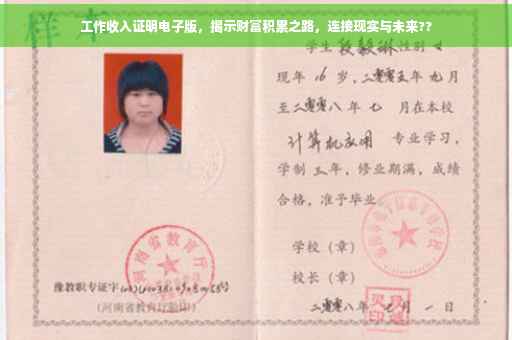 工作收入证明电子版，揭示财富积累之路，连接现实与未来??
样本
学生 段毅琳 性别 女
现年 16 岁，二零零五年 九月
至二零零八年 七 月在本校
计算机应用 专业学习，
学制 三年，修业期满，成绩
合格，准予毕业。
学校（章）
校长（章）
二零零八年 七 月 一 日
河南省教育厅
豫教职专证字
（河南省教育厅验印）